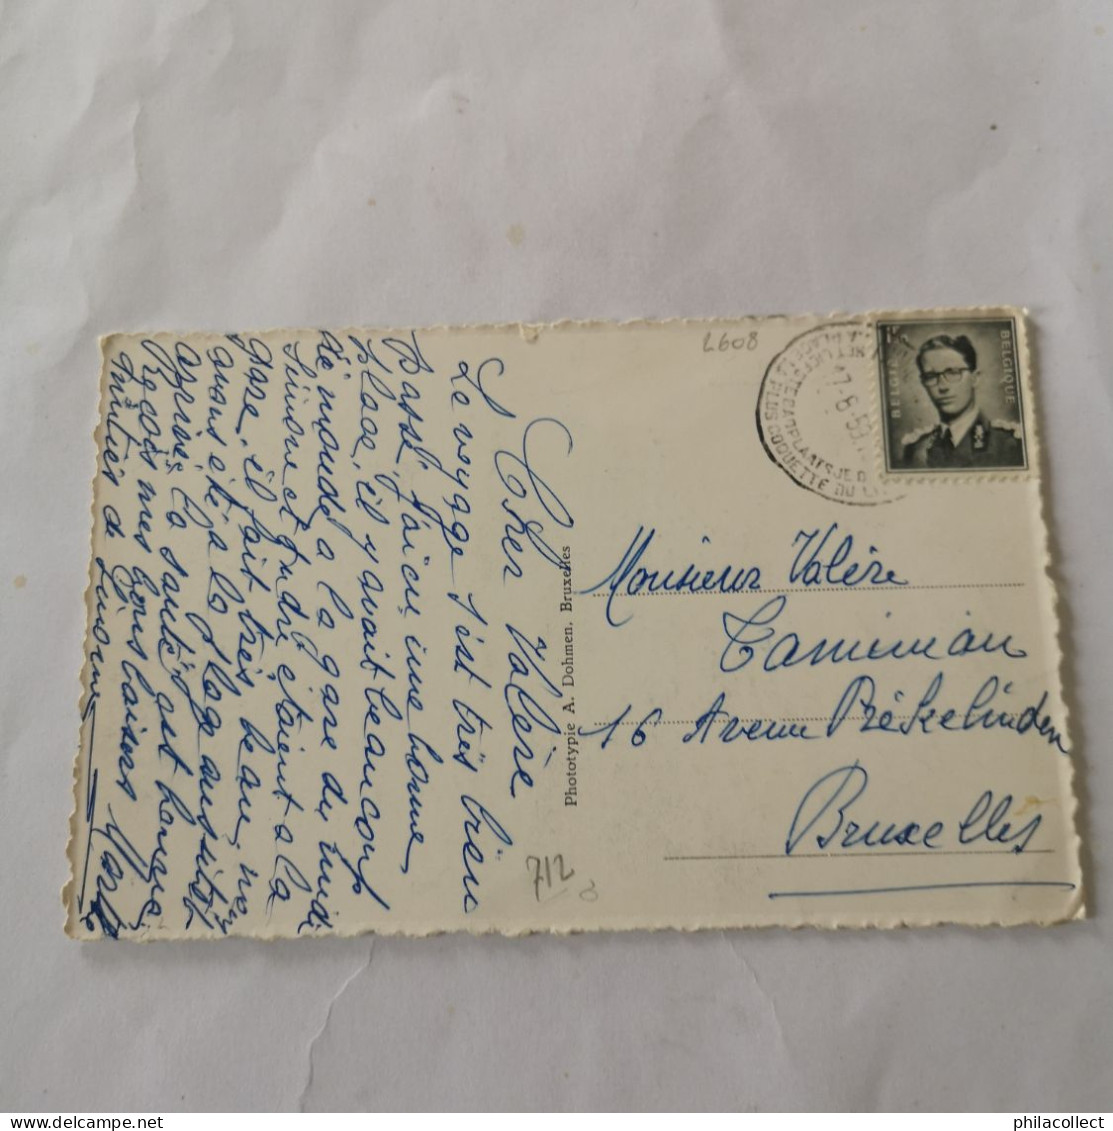 Cher Valère
Le voyage s'est très bien
passé, j'ai eu une bonne
place, il y avait beaucoup
de monde a la gare du midi
Simone et André étaient a la
gare, il fait très beau, nous
avons été a la plage aussitôt
arrivés la santé est bonne
Recois mes bons baisers
amitiés de Simone
Phototypie A. Dohmen, Bruxelles
712
2608
PLUS COQUETTE DU
-8-53
BELGIQUE
BELGIE
Monsieur Valère
16 Avenue
Bruxelles
philacollect